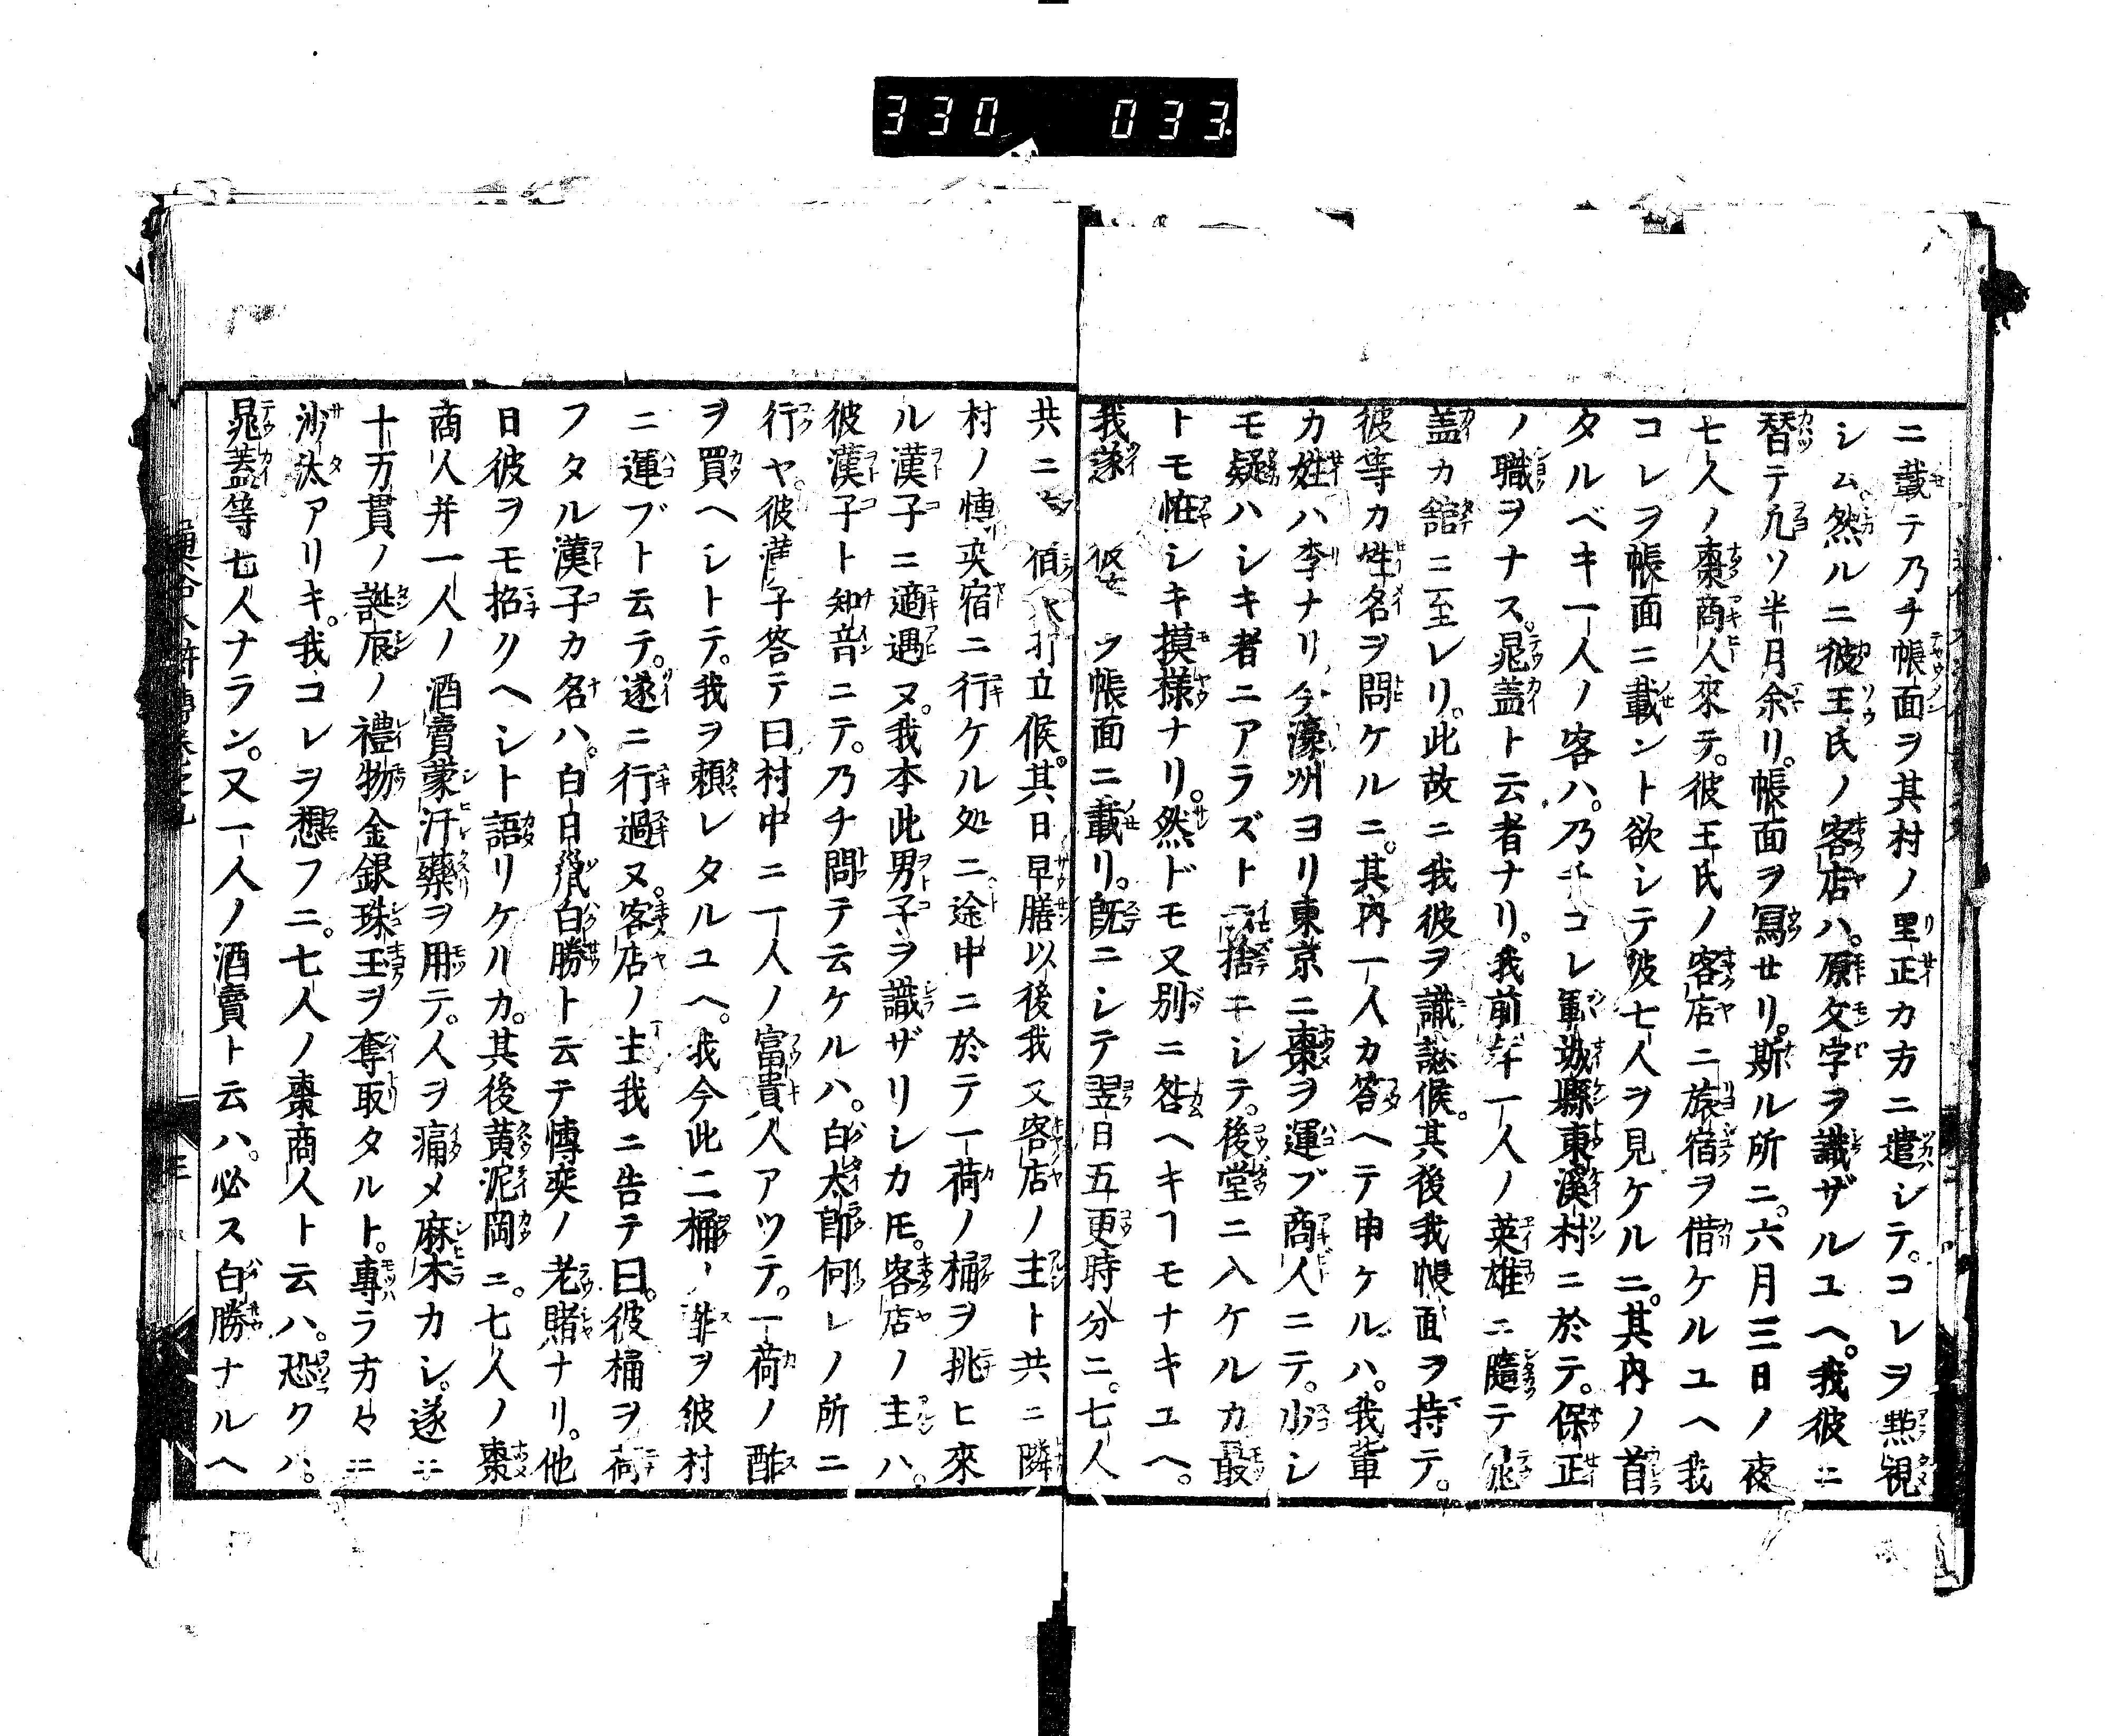 330 033
ニ載テ乃チ帳面ヲ其村ノ里正カ方ニ遣シテ。コレヲ㸃視
シム。然ルニ彼王氏ノ客店ハ。原文字ヲ識ザルユヘ。我彼ニ
替テ凢ソ半月余リ。帳面ヲ冩セリ。斯ル所ニ。六月三日ノ夜
七人ノ棗商人來テ。彼王氏ノ客店ニ旅宿ヲ借ケルユヘ我
コレヲ帳面ニ載ント欲シテ彼七人ヲ見ケルニ。其内ノ首
タルベキ一人ノ客ハ。乃チコレ鄆城縣東溪村ニ於テ。保正
ノ職ヲナス。晁蓋ト云者ナリ。我前年一人ノ英雄ニ隨テ晁
蓋カ舘ニ至レリ。此故ニ我彼ヲ識認候。其後我帳面ヲ持テ。
彼等カ性名ヲ問ケルニ。其内一人カ答ヘテ申ケルハ。我輩
カ姓ハ李ナリ今濠州ヨリ東京ニ棗ヲ運ブ商人ニテ。少シ
モ疑ハシキ者ニアラズト云捨モシテ。後堂ニ入ケルカ最
トモ恠シキ摸様ナリ。然ドモ又別ニ咎ヘキヿモナキユヘ。
我遂 彼 ヲ帳面ニ載リ。既ニシテ翌日五更時分ニ。七人
共ニ 打立候。其日早膳以後我又客店ノ主ト共ニ隣
村ノ博奕宿ニ行ケル処ニ途中ニ於テ一荷ノ桶ヲ挑ヒ來
ル漢子ニ適遇ヌ。我本此男子ヲ識ザリシカ𪜈。客店ノ主ハ。
彼漢子ト知音ニテ。乃チ問テ云ケルハ。白太郎何レノ所ニ
行ヤ。彼漢子答テ曰村中ニ一人ノ富貴人アツテ。一荷ノ酢
ヲ買ヘシトテ。我ヲ頼レタルユヘ。我今此二桶ノ酢ヲ彼村
ニ運ブト云テ。遂ニ行過ヌ。客店ノ主我ニ告テ曰。彼桶ヲ荷
フタル漢子カ名ハ。白日鼠白勝ト云テ博奕ノ老賭ナリ。他
日彼ヲモ招クヘシト語リケルカ。其後黄泥岡ニ。七人ノ棗
商人并一人ノ酒賣蒙汗藥ヲ用テ。人ヲ痛メ麻木カシ。遂ニ
十万貫ノ誕辰ノ禮物金銀珠玉ヲ奪取タルト。專ラ方々ニ
沙汰アリキ。我コレヲ想フニ。七人ノ棗商人ト云ハ。恐クハ。
晁蓋等七人ナラン。又一人ノ酒賣ト云ハ。必ス白勝ナルヘ